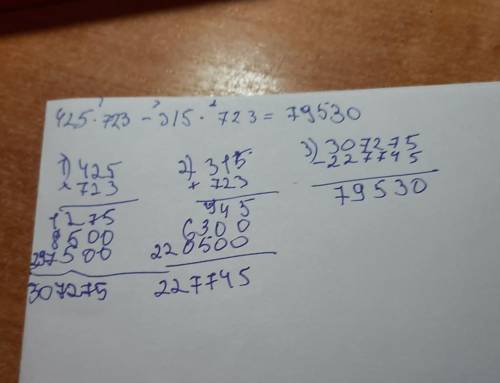 425·723-315·723=79530
1) 425
× 723
1275
8500
297500
307275
2) 315
× 723
945
6300
220500
227745
3) 307275
- 227745
79530